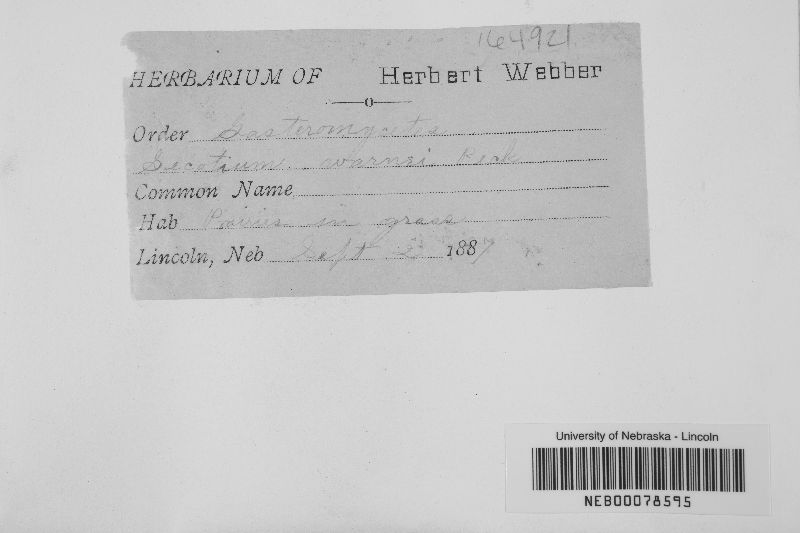 164921
HERBARIUM OF Herbert Webber
Order Gasteromycetes
Secotium warnei Peck
Common Name
Hab Prairies in grass
Lincoln, Neb Sept 2 1887
University of Nebraska - Lincoln
NEB00078595